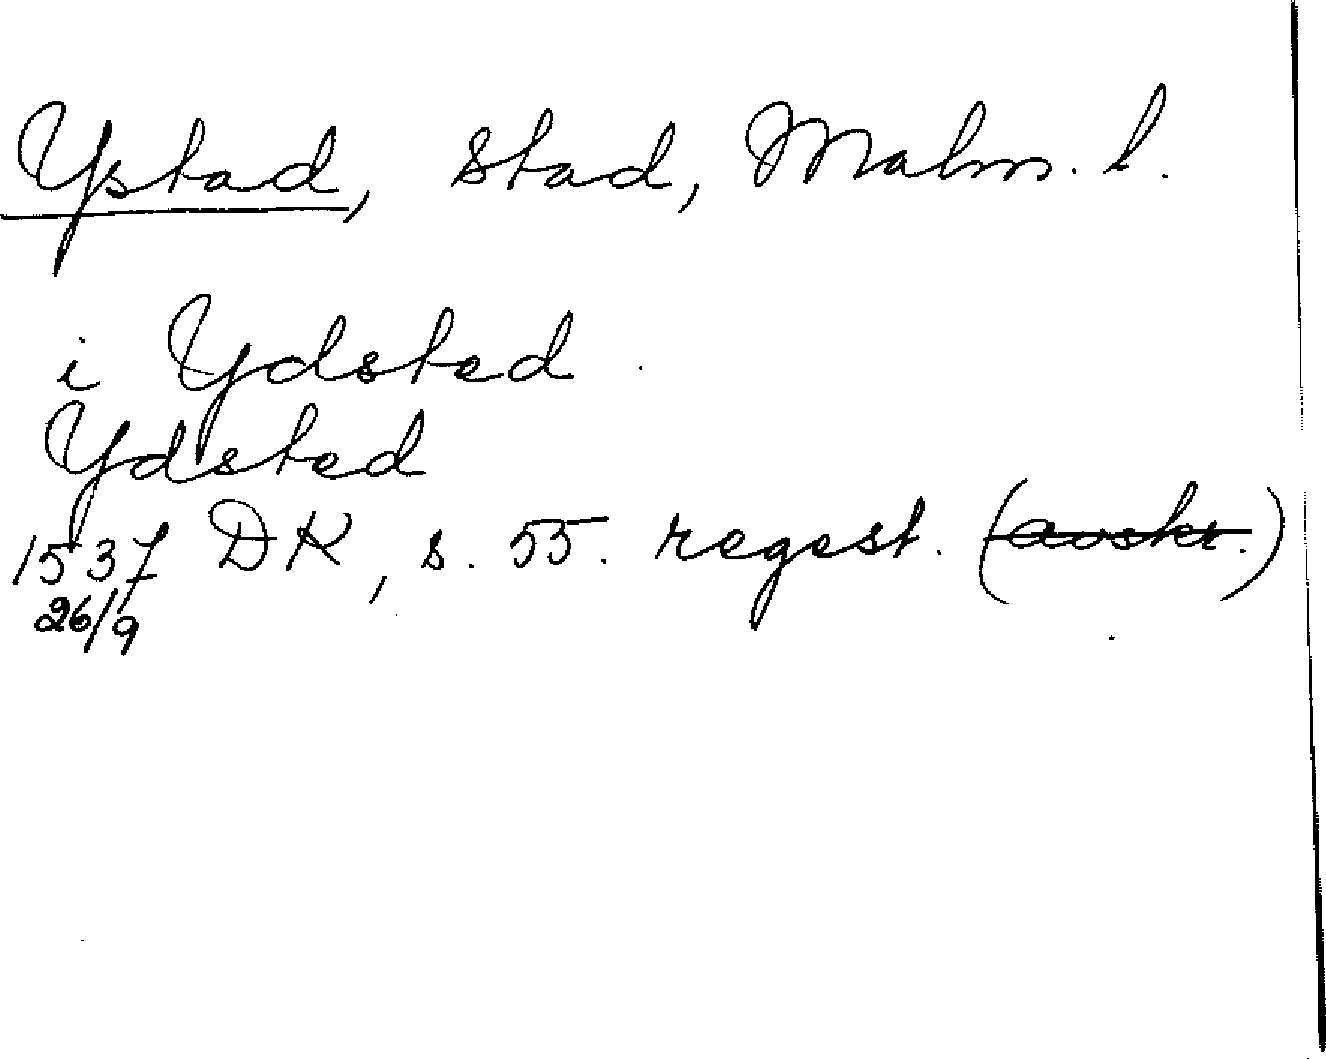 Ystad, stad, Malm. l.
i Ydsted
Ydsted
1537 DK, s. 55. regest. (avskr.)
26/9